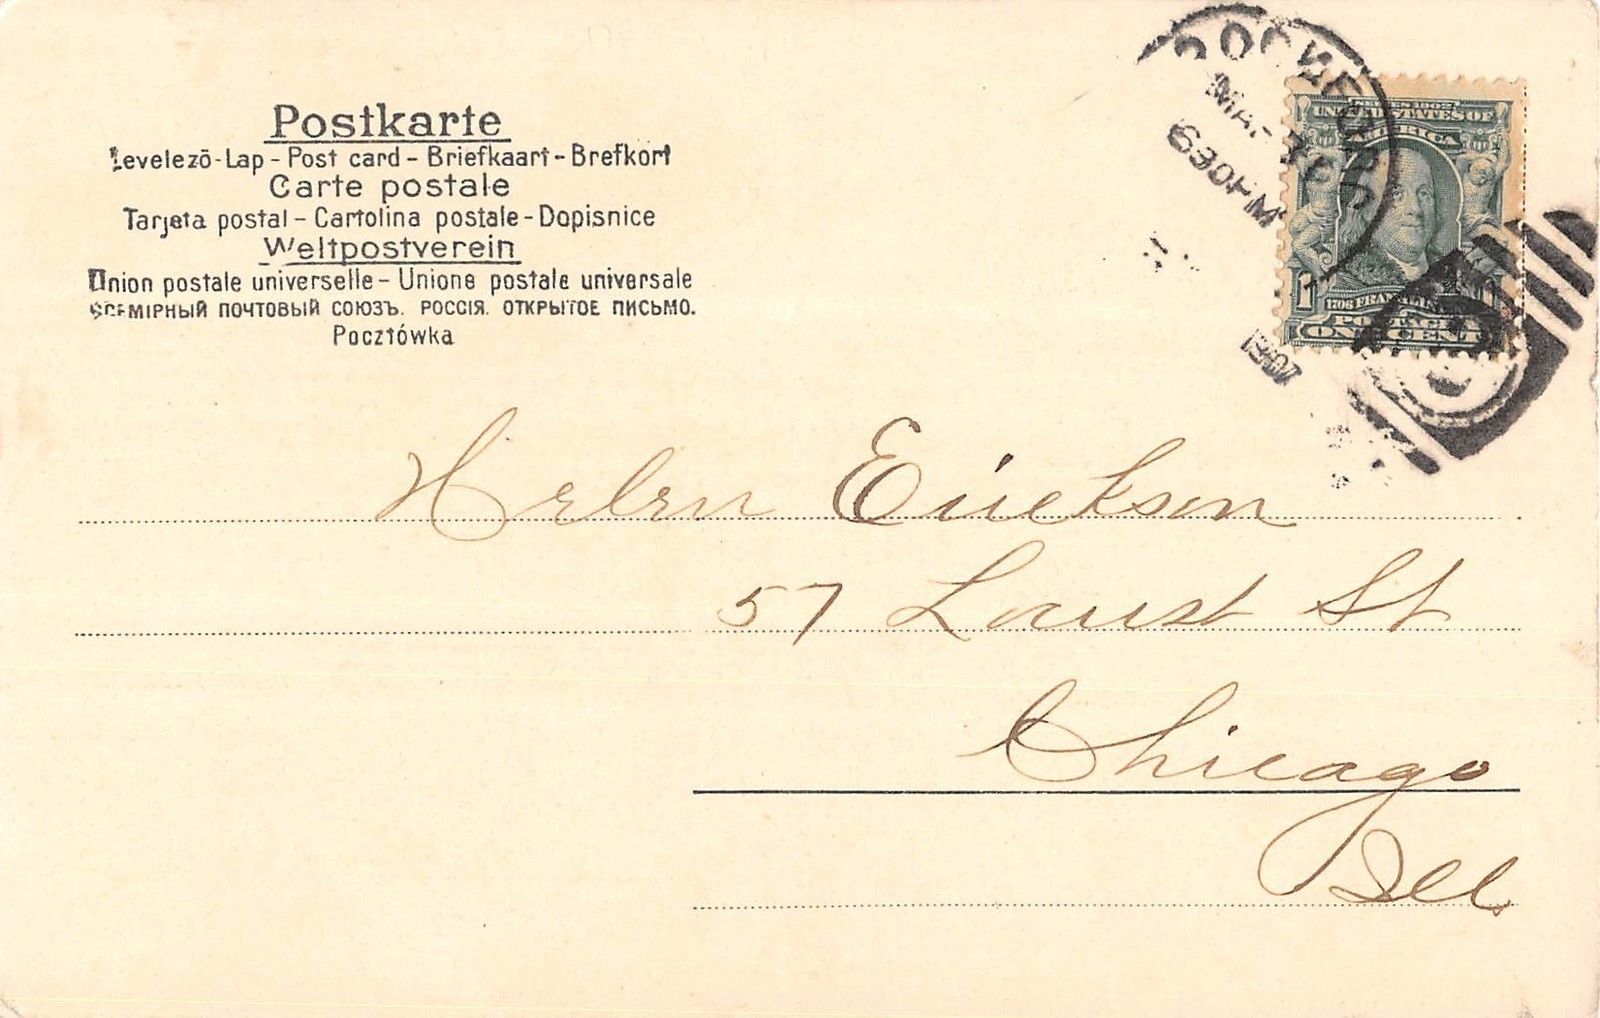 Postkarte
Levelező-Lap - Post card - Briefkaart - Brefkort
Carte postale
Tarjeta postal - Cartolina postale - Dopisnice
Weltpostverein
Union postale universelle - Unione postale universale
ВСЕМІРНЫЙ ПОЧТОВЫЙ СОЮЗЪ. РОССІЯ. ОТКРЫТОЕ ПИСЬМО.
Pocztówka
ROCKFORD
MAR
630PM
1907
SERIES 1902
UNITED STATES OF
AMERICA
1706 FRANKLIN
POSTAGE
1 ONE CENT 1
Helen Erickson
57 Locust St
Chicago
Ill